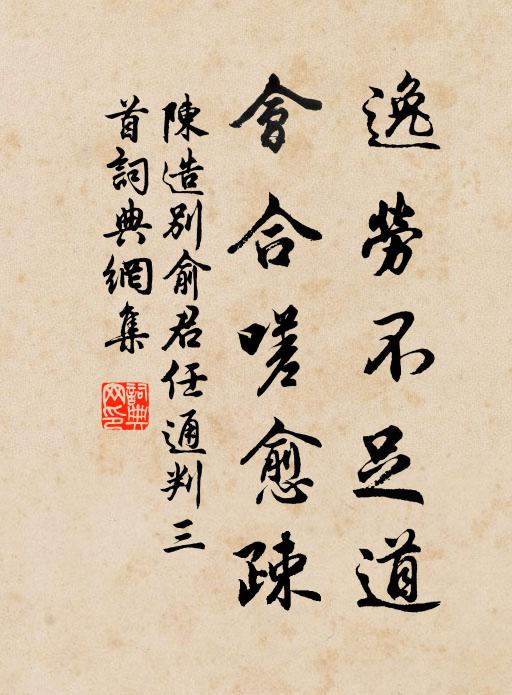 逸勞不足道
會合嗟愈疎
陳造別俞君任通判三
首詞典網集
詞典網印